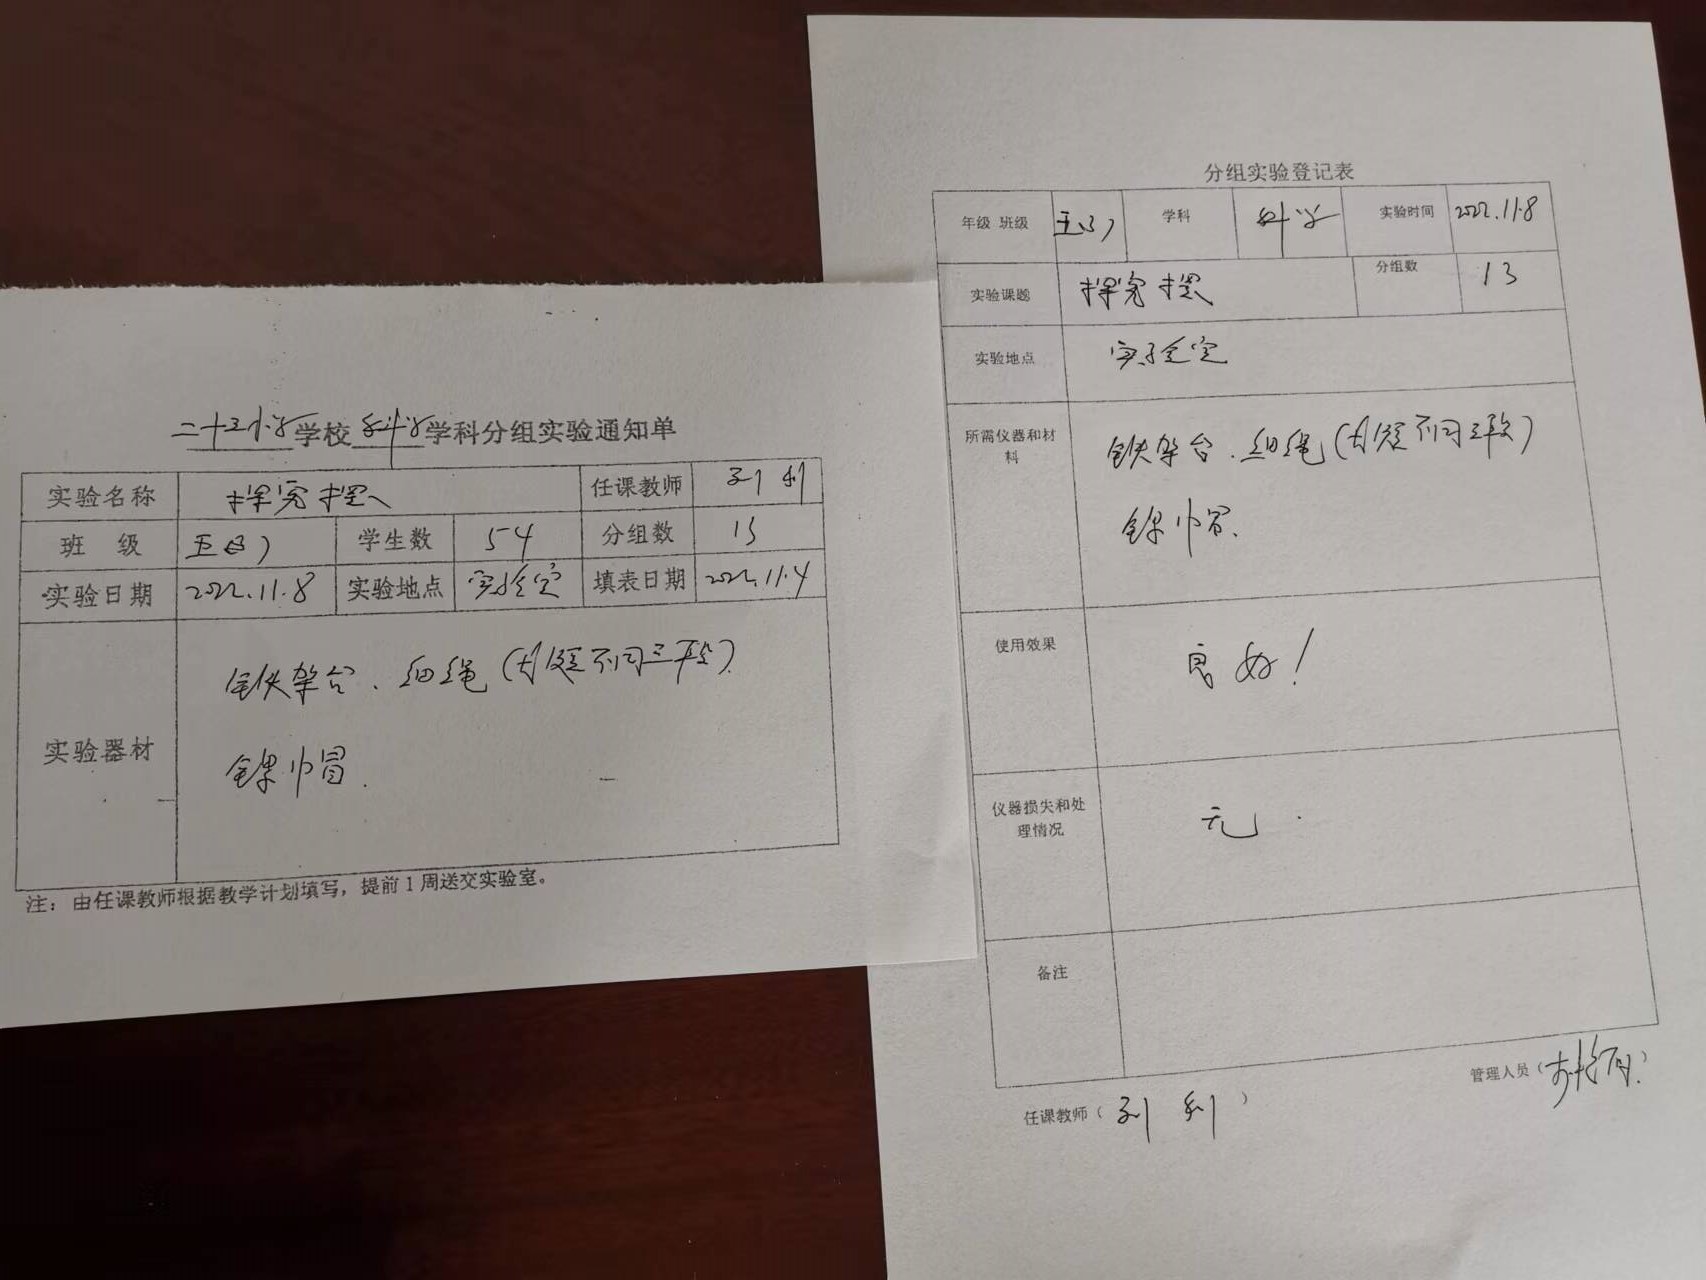 二十三小学学校 科学 学科分组实验通知单
实验名称 探究摆 任课教师 刘利
班 级 学生数 54 分组数 13
实验日期 2022.11.8 实验地点 实验室 填表日期 2022.11.4
实验器材 铁架台、细绳(长短不同三段)
镙帽.
注：由任课教师根据教学计划填写，提前1周送交实验室。
分组实验登记表
年级 班级 学科 科学 实验时间 2022.11.8
实验课题 探究摆 分组数 13
实验地点 实验室
所需仪器和材料 铁架台、细绳(长短不同三段)
镙帽.
使用效果 良好！
仪器损失和处理情况 无.
备注
管理人员（ ）
任课教师（刘利）